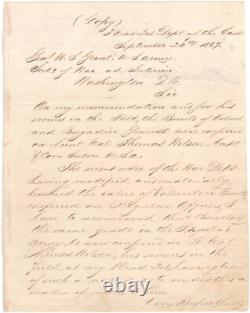 (Copy)
Head Qrs Dept of the East
September 24th 1867.
Genl U. S. Grant. U.S. Army.
Secty of War ad Interim
Washington D.C.
Sir
On my recommendation and for his
services in the Field, the Brevets of Colonel
and Brigadier General were conferred
on Lieut Col Thomas Wilson.
of Com U.S.A.
The recent order of the War Dept
having modified or materially
the value of Volunteer Brevets
conferred on Regular Officers, I
have to recommend that Brevets of
the same grade in the Regular
Army, be now conferred on Lt Col
Thomas Wilson, his services in the
field, at my Head Qrs having been of
such a nature as to render this a
matter of justice to him.
Very Respectfully